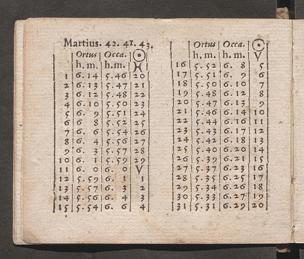 Martius. 42. 41. 43.
Ortus Occa. ☉
h. m. h. m. ♓
1 6.14 5.46 20
2 6.13 5.47 21
3 6.12 5.48 22
4 6.10 5.50 23
5 6. 9 5.51 24
6 6. 8 5.52 25
7 6. 6 5.54 26
8 6. 4 5.56 27
9 6. 3 5.57 28
10 6. 1 5.59 29
11 6. 0 6. 0 V
12 5.59 6. 1 1
13 5.57 6. 3 2
14 5.56 6. 4 3
15 5.54 6. 6 4
Ortus Occa. ☉
h. m. h. m. V
16 5.52 6. 8 5
17 5.51 6. 9 6
18 5.50 6.10 7
19 5.48 6.12 8
20 5.47 6.13 9
21 5.46 6.14 10
22 5.44 6.16 11
23 5.43 6.17 12
24 5.42 6.18 13
25 5.40 6.20 14
26 5.39 6.21 15
27 5.37 6.23 16
28 5.35 6.25 17
29 5.34 6.26 18
30 5.33 6.27 19
31 5.31 6.29 20